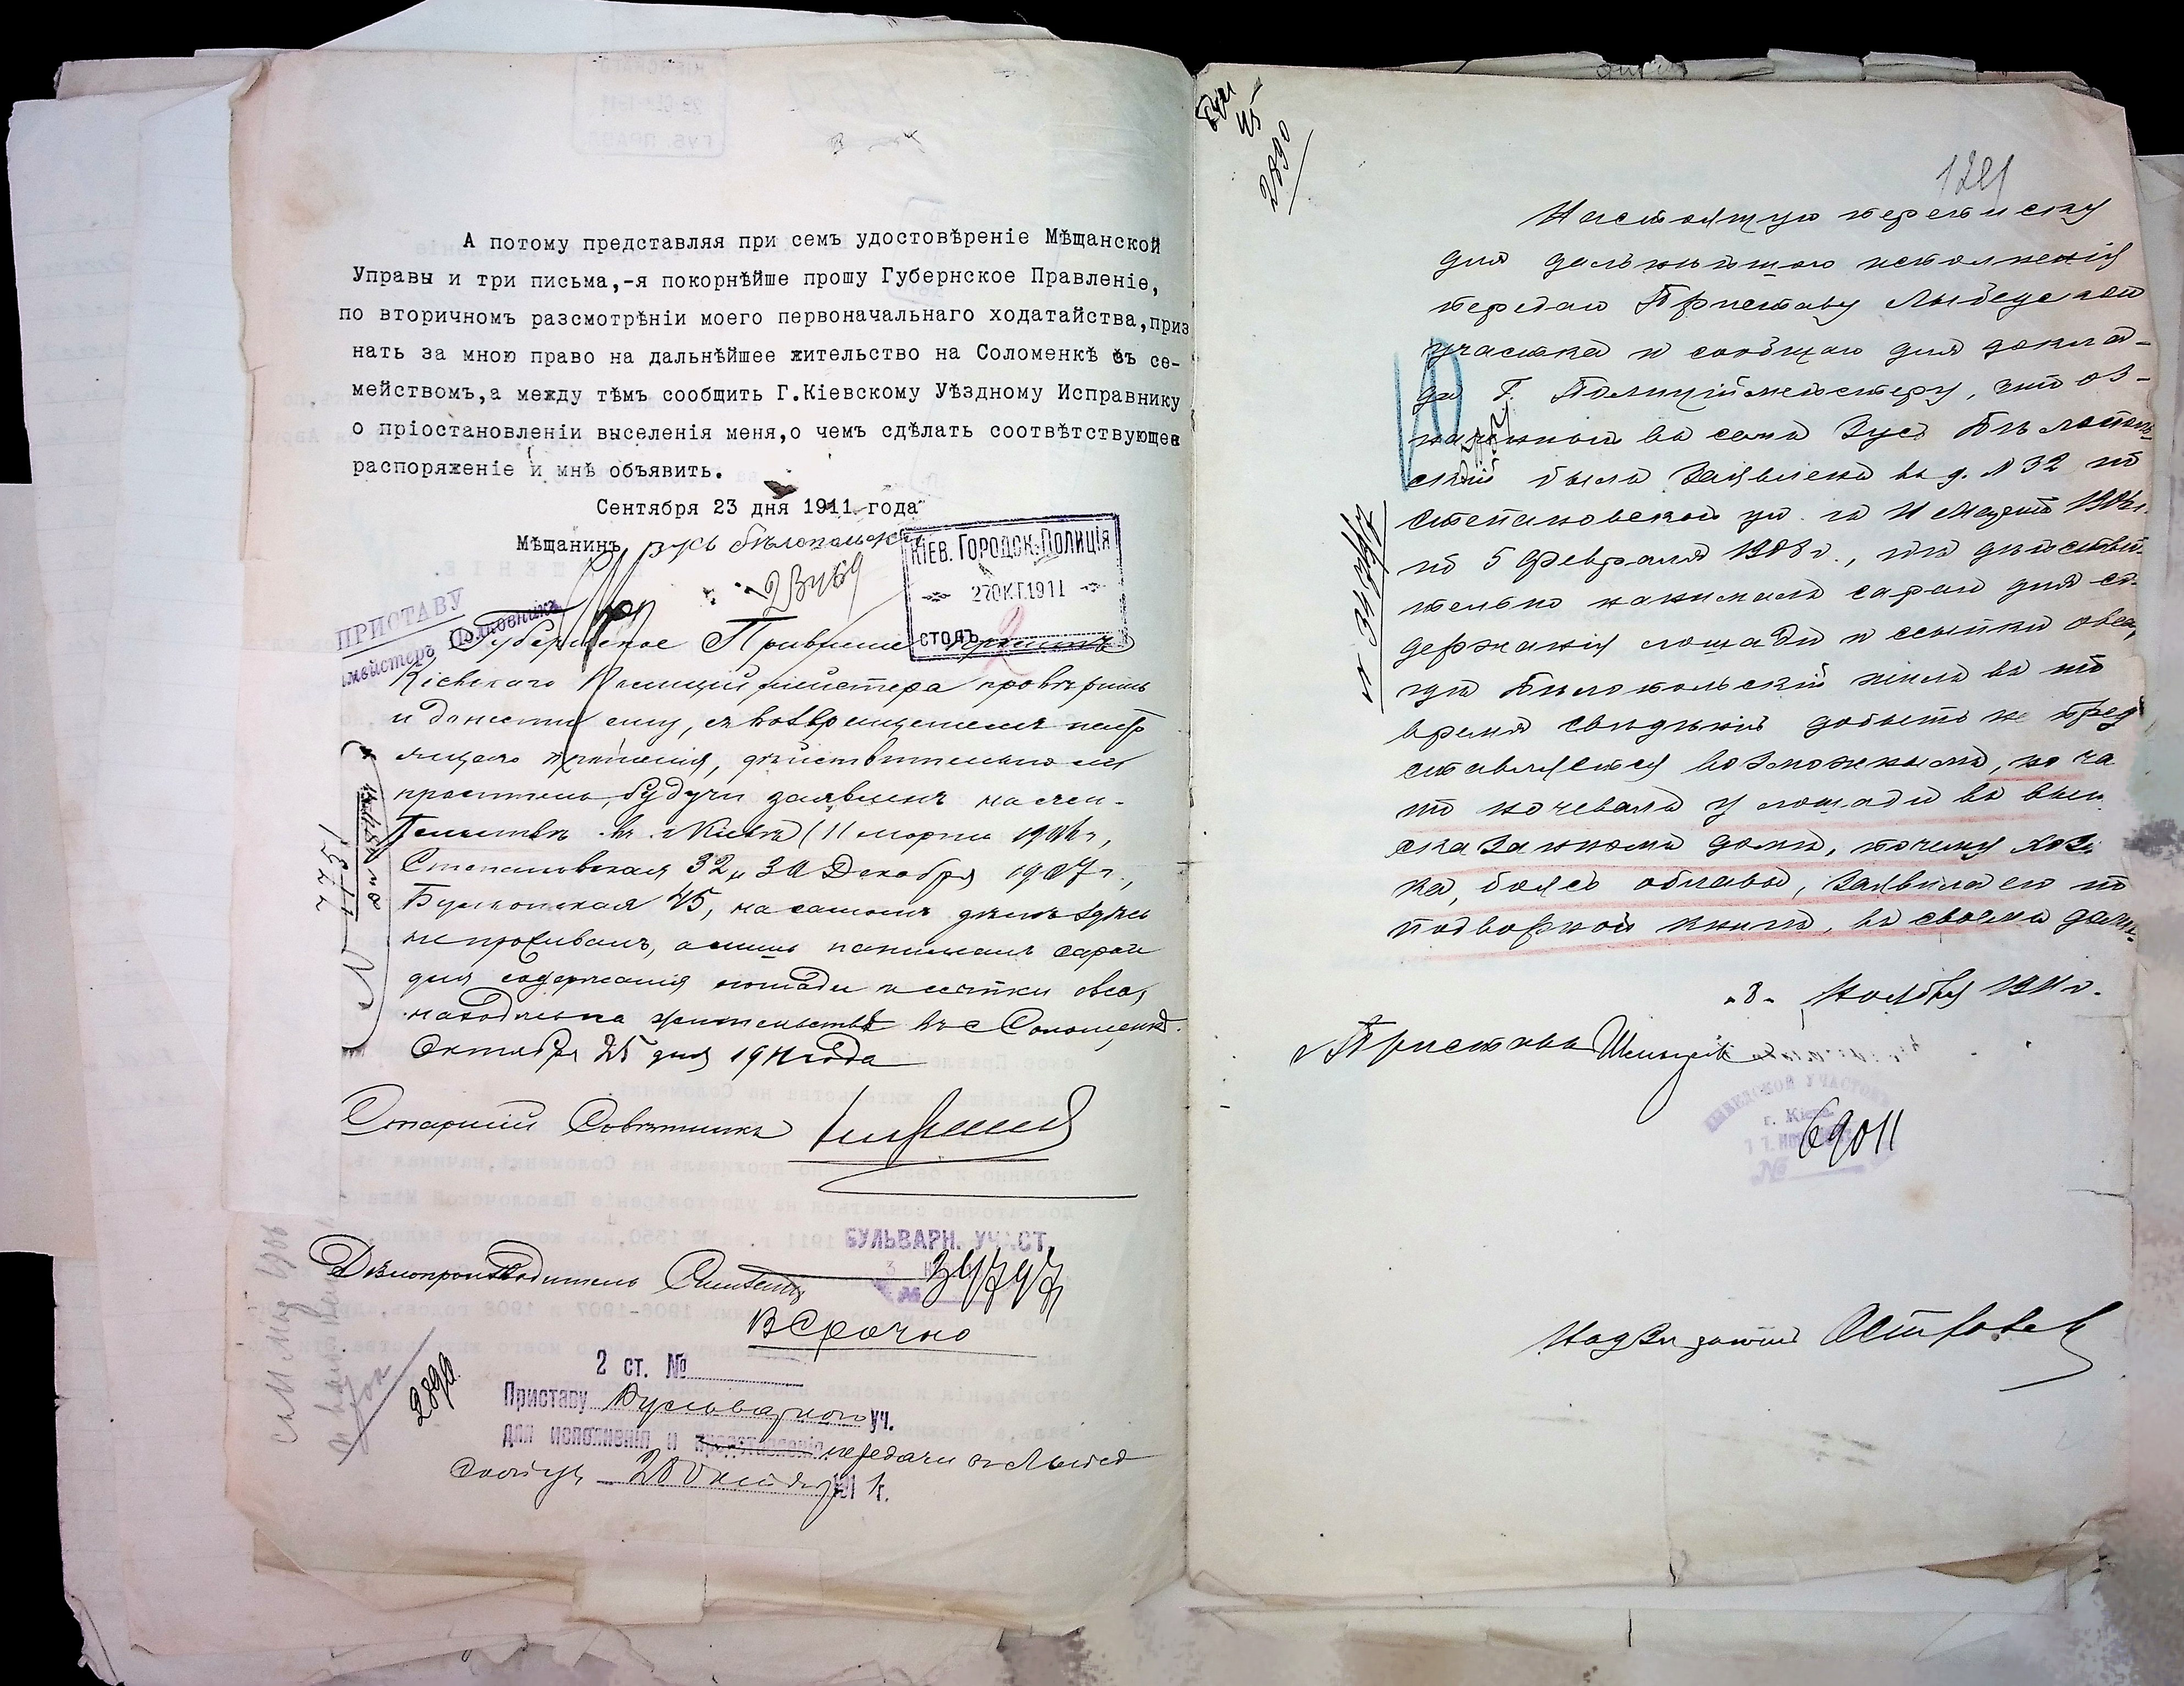 А потому представляя при семъ удостовѣреніе Мѣщанской
Управы и три письма,-я покорнѣйше прошу Губернское Правленіе,
по вторичномъ разсмотрѣніи моего первоначальнаго ходатайства,приз
нать за мною право на дальнѣйшее жительство на Соломенкѣ съ се-
мействомъ,а между тѣмъ сообщить Г.Кіевскому Уѣздному Исправнику
о пріостановленіи выселенія меня,о чемъ сдѣлать соотвѣтствующее
распоряженіе и мнѣ объявить.
Сентября 23 дня 1911 года
Мѣщанинъ
КІЕВ. ГОРОДСК. ПОЛИЦІЯ
27 ОКТ. 1911
СТОЛЪ 2
ПРИСТАВУ
Полковникъ
Губернское Правленіе
Кіевскаго Полиціймейстера провѣрить
и донести ему, съ возвращеніемъ насто
ящаго прошенія, дѣйствительно ли
проситель, будучи заявленъ на жи-
тельствѣ въ г. Кіевѣ (11 марта 1906 г.,
Степановская 32, и 30 Декабря 1907 г.,
45, на самомъ дѣлѣ здѣсь
не проживалъ, а лишь нанималъ сарай
для содержанія лошади и ссыпки овса,
жительствѣ въ с. Соломенкѣ.
Октября 25 дня 1911 года
Старшій Совѣтникъ
Дѣлопроизводитель
БУЛЬВАРН. УЧАСТ.
34797
Срочно
2890
2 ст. №
Приставу Бульварного уч.
для исполненія и передачи въ Лыбед
28 Октября 1911 г.
2890
1291
Настоящую переписку
для дальнѣйшаго исполненія
передаю Приставу Лыбедского
участка и сообщаю для докла-
да Г. Полиціймейстеру, что оз-
наченный въ семъ Зусь Бѣлополь-
скій былъ заявленъ въ д. № 32 по
Степановской ул. съ 11 Марта 1906 г.
по 5 Февраля 1908 г., гдѣ дѣйстви-
тельно нанималъ сарай для со-
держанія лошади и ссыпки овса,
гдѣ Бѣлопольскій жилъ въ то
время свѣдѣній добыть не пред
ставляется возможнымъ, но ча
то ночевалъ у лошади въ выше
сказанномъ домѣ, почему хозяй
ка, боясь облавы, заявила его по
подворной книгѣ, въ своемъ домѣ.
"8" Ноября 1911 г.
Приставъ
ЛЫБЕДСКОЙ УЧАСТОКЪ
г. Кіева
№
69011
Надзиратель